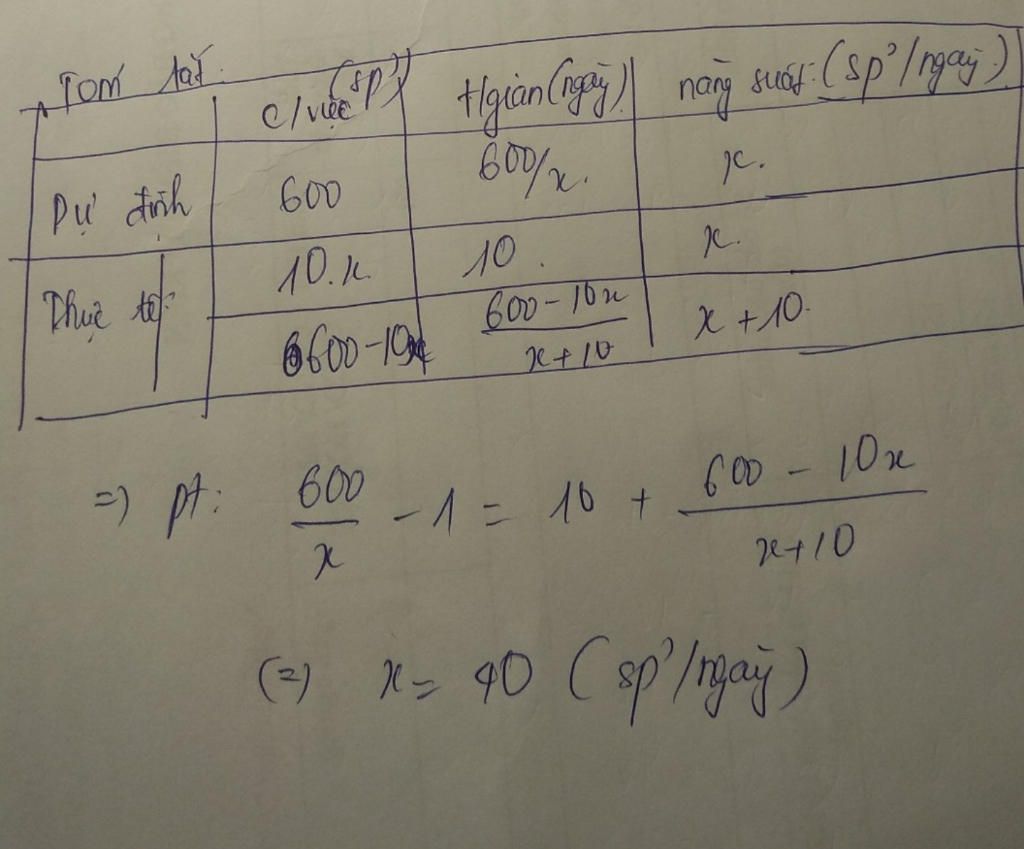 Tóm tắt:
c/việc (sp²) t/gian (ngày) năng suất: (sp²/ngày)
Dự định 600 600/x. x.
Thực tế: 10.x 10. x.
600-10x (600-10x)/(x+10) x+10.
=) pt: 600/x - 1 = 10 + (600 - 10x)/(x+10)
(=) x = 40 (sp²/ngày)